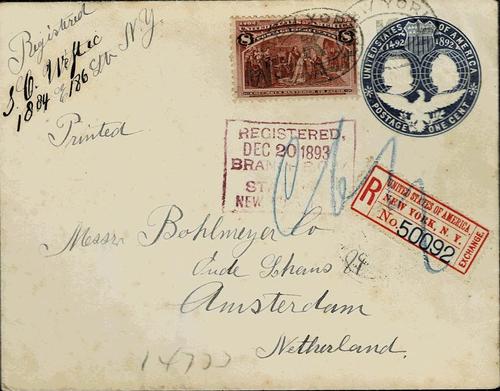 Registered
1884 E 186 St N.Y.
Printed
UNITED STATES OF AMERICA
1492 1892
POSTAGE ONE CENT
NEW YORK
REGISTERED,
DEC 20 1893
BRAN
ST
NEW
R
UNITED STATES OF AMERICA.
NEW YORK, N. Y.
No. 50092
EXCHANGE.
Messrs Bohlmeyer Co
Oude Schans
Amsterdam
Netherland.